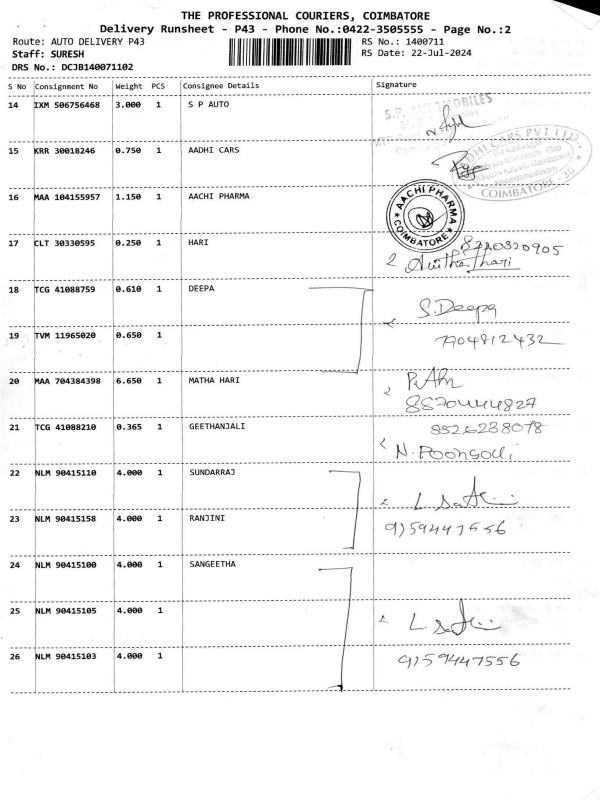 THE PROFESSIONAL COURIERS, COIMBATORE
Delivery Runsheet - P43 - Phone No.:0422-3505555 - Page No.:2
Route: AUTO DELIVERY P43 RS No.: 1400711
Staff: SURESH RS Date: 22-Jul-2024
DRS No.: DCJB140071102
S No Consignment No Weight PCS Consignee Details Signature
14 IXM 506756468 3.000 1 S P AUTO
S.P. AUTOMOBILES
15 KRR 30018246 0.750 1 AADHI CARS
AADHI CARS PVT LTD.,
COIMBATORE - 30
16 MAA 104155957 1.150 1 AACHI PHARMA
AACHI PHARMA
COIMBATORE
17 CLT 30330595 0.250 1 HARI
8220320905
18 TCG 41088759 0.610 1 DEEPA
S.Deepa
19 TVM 11965020 0.650 1
7904812432
20 MAA 704384398 6.650 1 MATHA HARI
8870444827
21 TCG 41088210 0.365 1 GEETHANJALI
8526238078
N. Poongodi
22 NLM 90415110 4.000 1 SUNDARRAJ
23 NLM 90415158 4.000 1 RANJINI
9159447556
24 NLM 90415100 4.000 1 SANGEETHA
25 NLM 90415105 4.000 1
26 NLM 90415103 4.000 1
9159447556